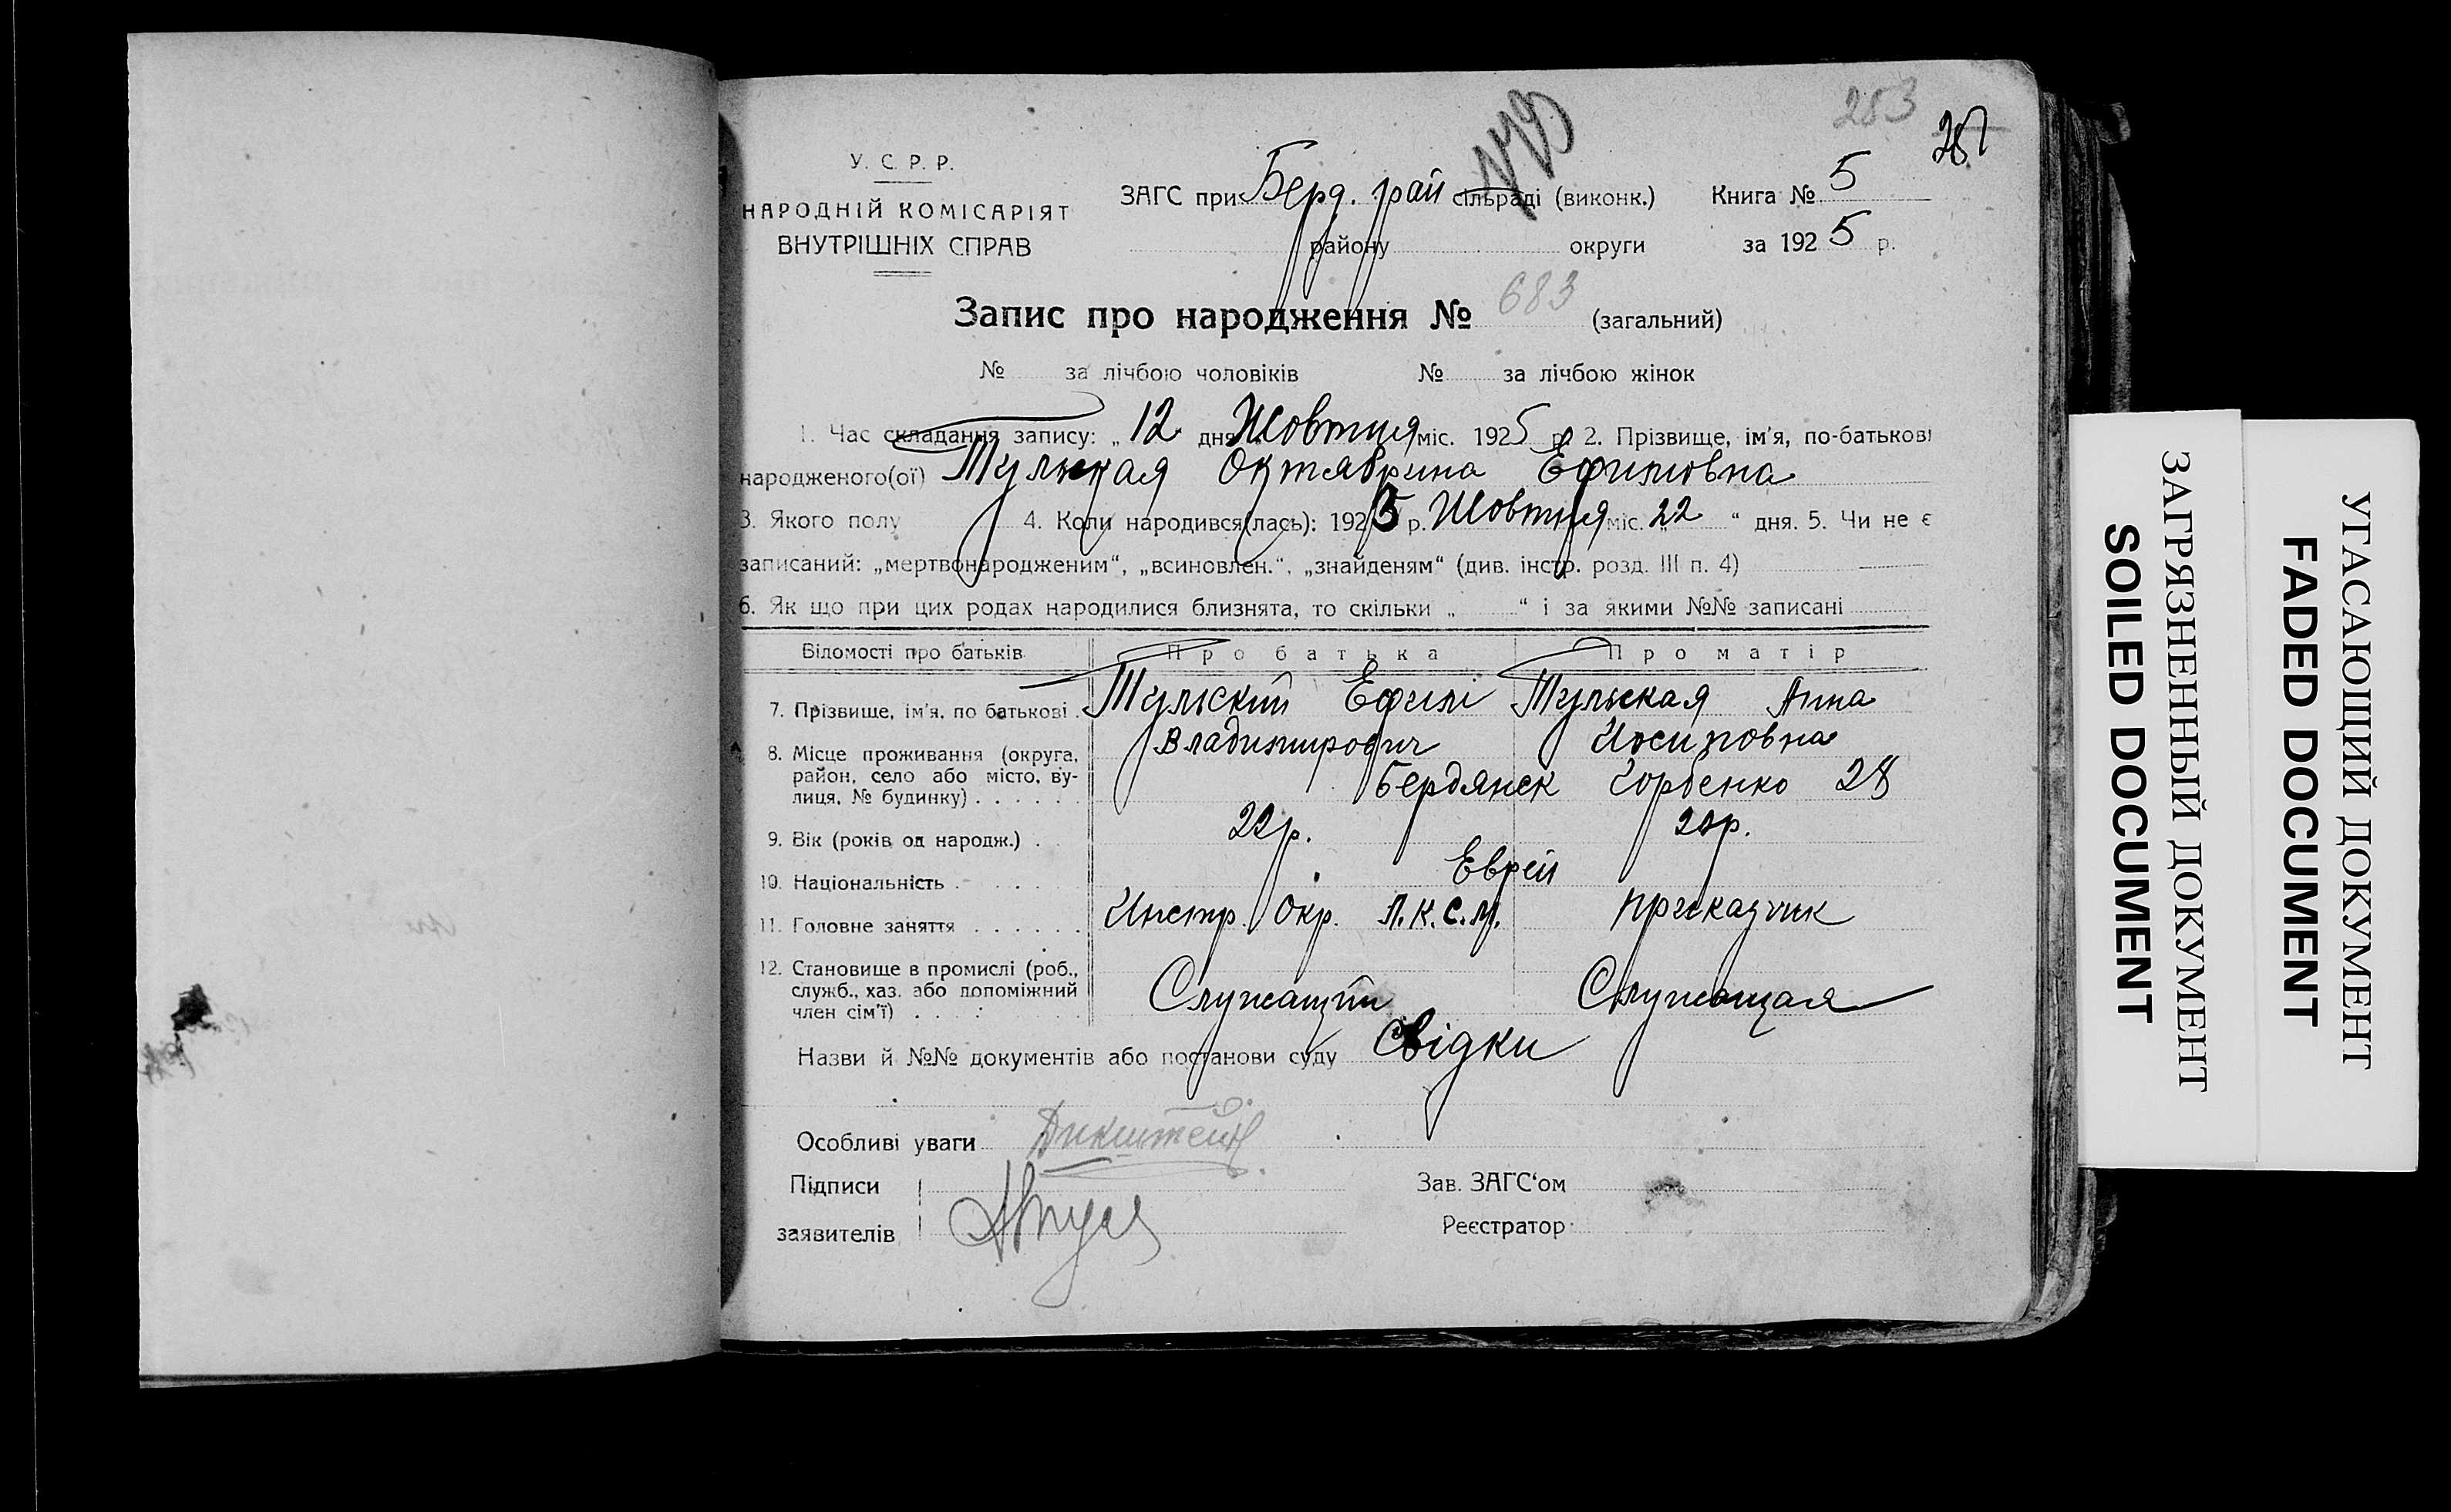 253
287
У. С. Р. Р.
НАРОДНІЙ КОМІСАРІЯТ
ВНУТРІШНІХ СПРАВ
ЗАГС при Берд. рай сільраді (виконк.) Книга № 5
району округи за 1925 р.
Запис про народження № 683 (загальний)
№ за лічбою чоловіків № за лічбою жінок
1. Час складання запису: „12 дня Жовтня міс. 1925 р. 2. Прізвище, ім'я, по-батькові
народженого(ої) Тульская Октябрина Ефимовна
3. Якого полу 4. Коли народився(лась): 1925 р. Жовтня міс. „22 “ дня. 5. Чи не є
записаний: „мертвонародженим“, „всиновлен.“, „знайденям“ (див. інстр. розд. III п. 4)
6. Як що при цих родах народилися близнята, то скільки „ “ і за якими №№ записані
Відомості про батьків Про батька Про матір
7. Прізвище, ім'я, по батькові . Тульский Ефим Тульская Анна
Владимирович Иосиповна
8. Місце проживання (округа,
район, село або місто, ву-
лиця, № будинку) . . . . . . Бердянск Горбенко 28
9. Вік (років од народж.) . 22р. 20р.
10. Національність . . . . Еврей
11. Головне заняття . . . . . . Инстр. Окр. Л.К.С.М. приказчик
12. Становище в промислі (роб.,
служб., хаз. або допоміжний
член сім'ї) . . . . Служащий Служащая
Назви й №№ документів або постанови суду Свідки
Особливі уваги Дикштейн
Підписи
заявителів
Зав. ЗАГС‘ом
Реєстратор
ЗАГРЯЗНЕННЫЙ ДОКУМЕНТ
SOILED DOCUMENT
УГАСАЮЩИЙ ДОКУМЕНТ
FADED DOCUMENT